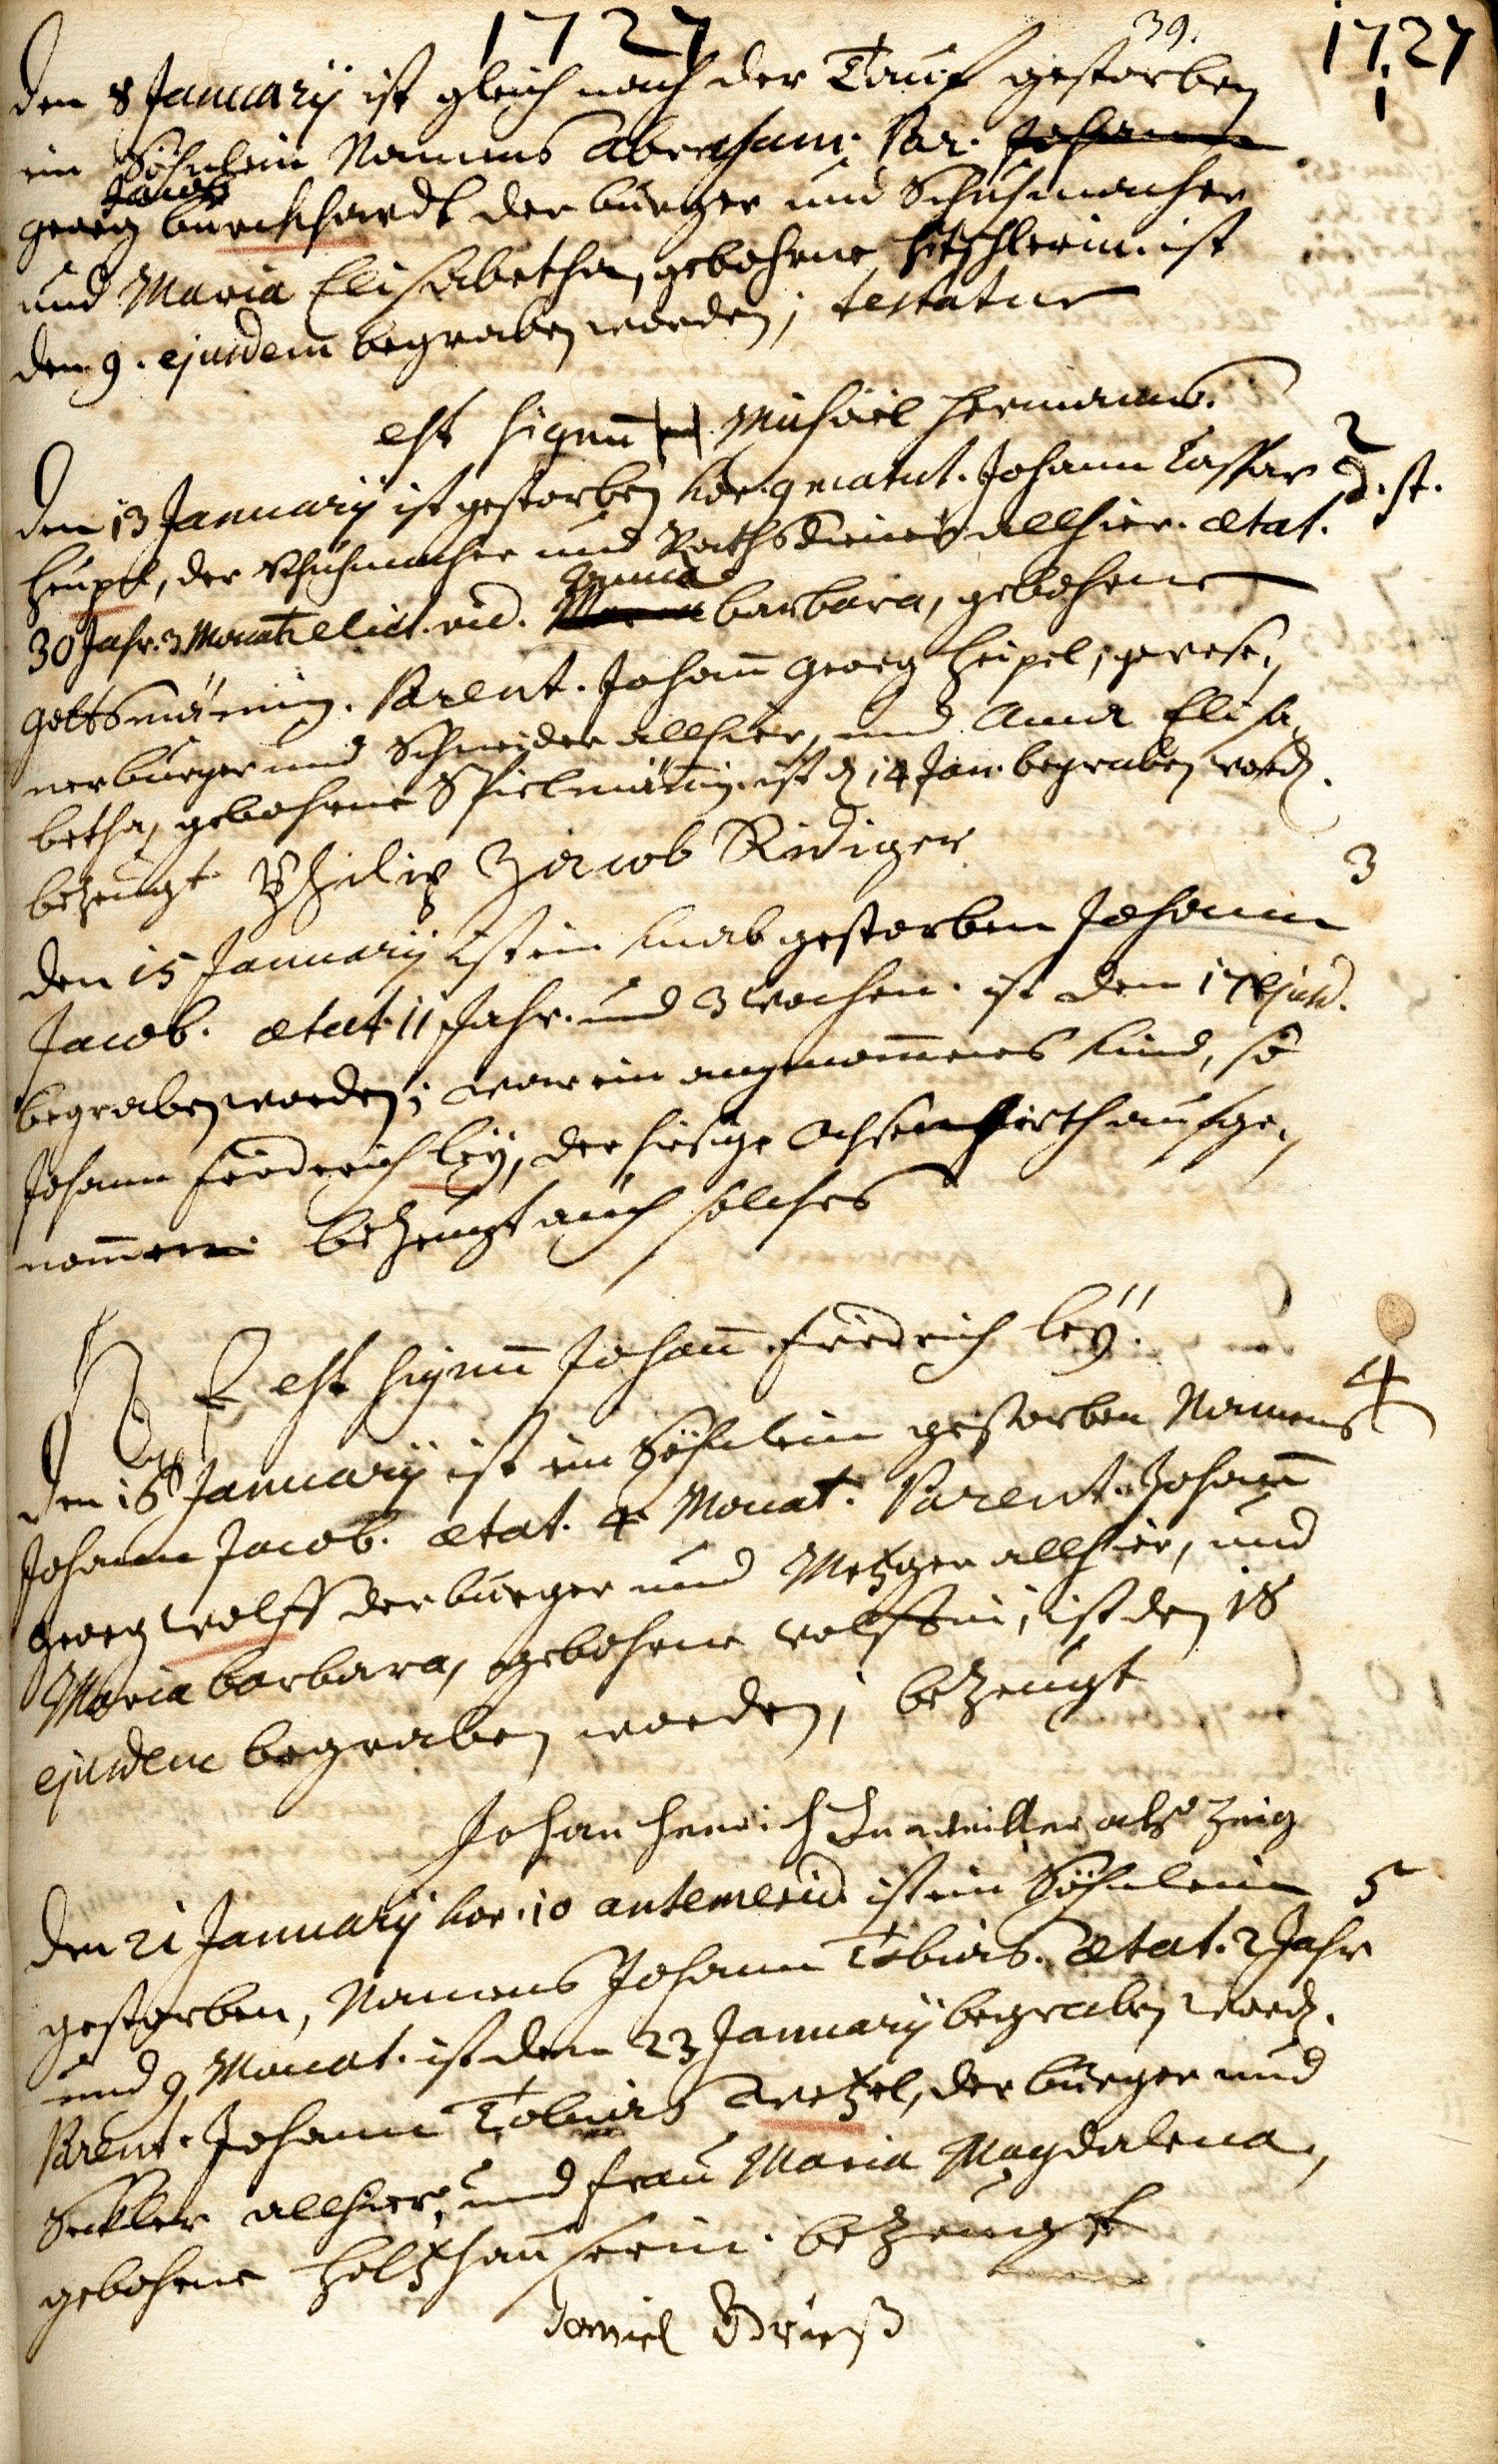 1727
39.
1727
1
den 8 Januarÿ ist gleich nach der Tauf gestorben
ein Söhnlein Namens Abraham. Par. Johann
Jacob
georg burckhardt der burger und Schuhmacher
und Maria Elisabetha, gebohrne ist
den 9. ejusdem begraben worden; testatur
est signū Michäel Hermanns.
2
den 13 Januarÿ ist gestorben hor. 9 matut. Johann Caspar
d. st.
Heupel, der Schuhmacher und Rathsdiener allhier. ætat.
30 Jahr. 3 Monat relict. vid. Anna barbara, gebohrne
gottsmännin. Parent. Johann georg Heipel, gewese„
ner burger und Schneider allhier, und Anna Elisa„
betha, gebohrne Spielmännin. ist d 14 Jan. begraben word.
bezeugt Philip Jacob Ridiger
3
den 15 Januarÿ ist ein knab gestorben Johann
Jacob. ætat. 11 Jahr. und 3 wochen. ist den 17 ejusd.
begraben worden; war ein angenommenes kind, so
Johann Friederich leÿ, der hiesige Ochsenwirth aufge„
nommen. bezeugt auch solches
est signū Johañ Friedrich leÿ.
4
den 16 Januarÿ ist ein Söhnlein gestorben Namens
Johann Jacob. ætat. 4 Monat. Parent. Johañ
georg wolff der burger und Metzger allhier, und
Maria barbara, gebohrne wolffin, ist den 18
ejusdem begraben worden; bezeugt
Johan Henrich als Zeig
5
den 21 Januarÿ hor. 10 antemerid. ist ein Söhnlein
gestorben, Namens Johann Tobias. ætat. 2 Jahr
und 9 Monat. ist den 23 Januarÿ begraben word.
Parent. Johann Tobias Wetzel, der burger und
Seckler allhier, und frau Maria Magdalena,
gebohrne Holtzhauserin. bezeugt
Daniel Brieß